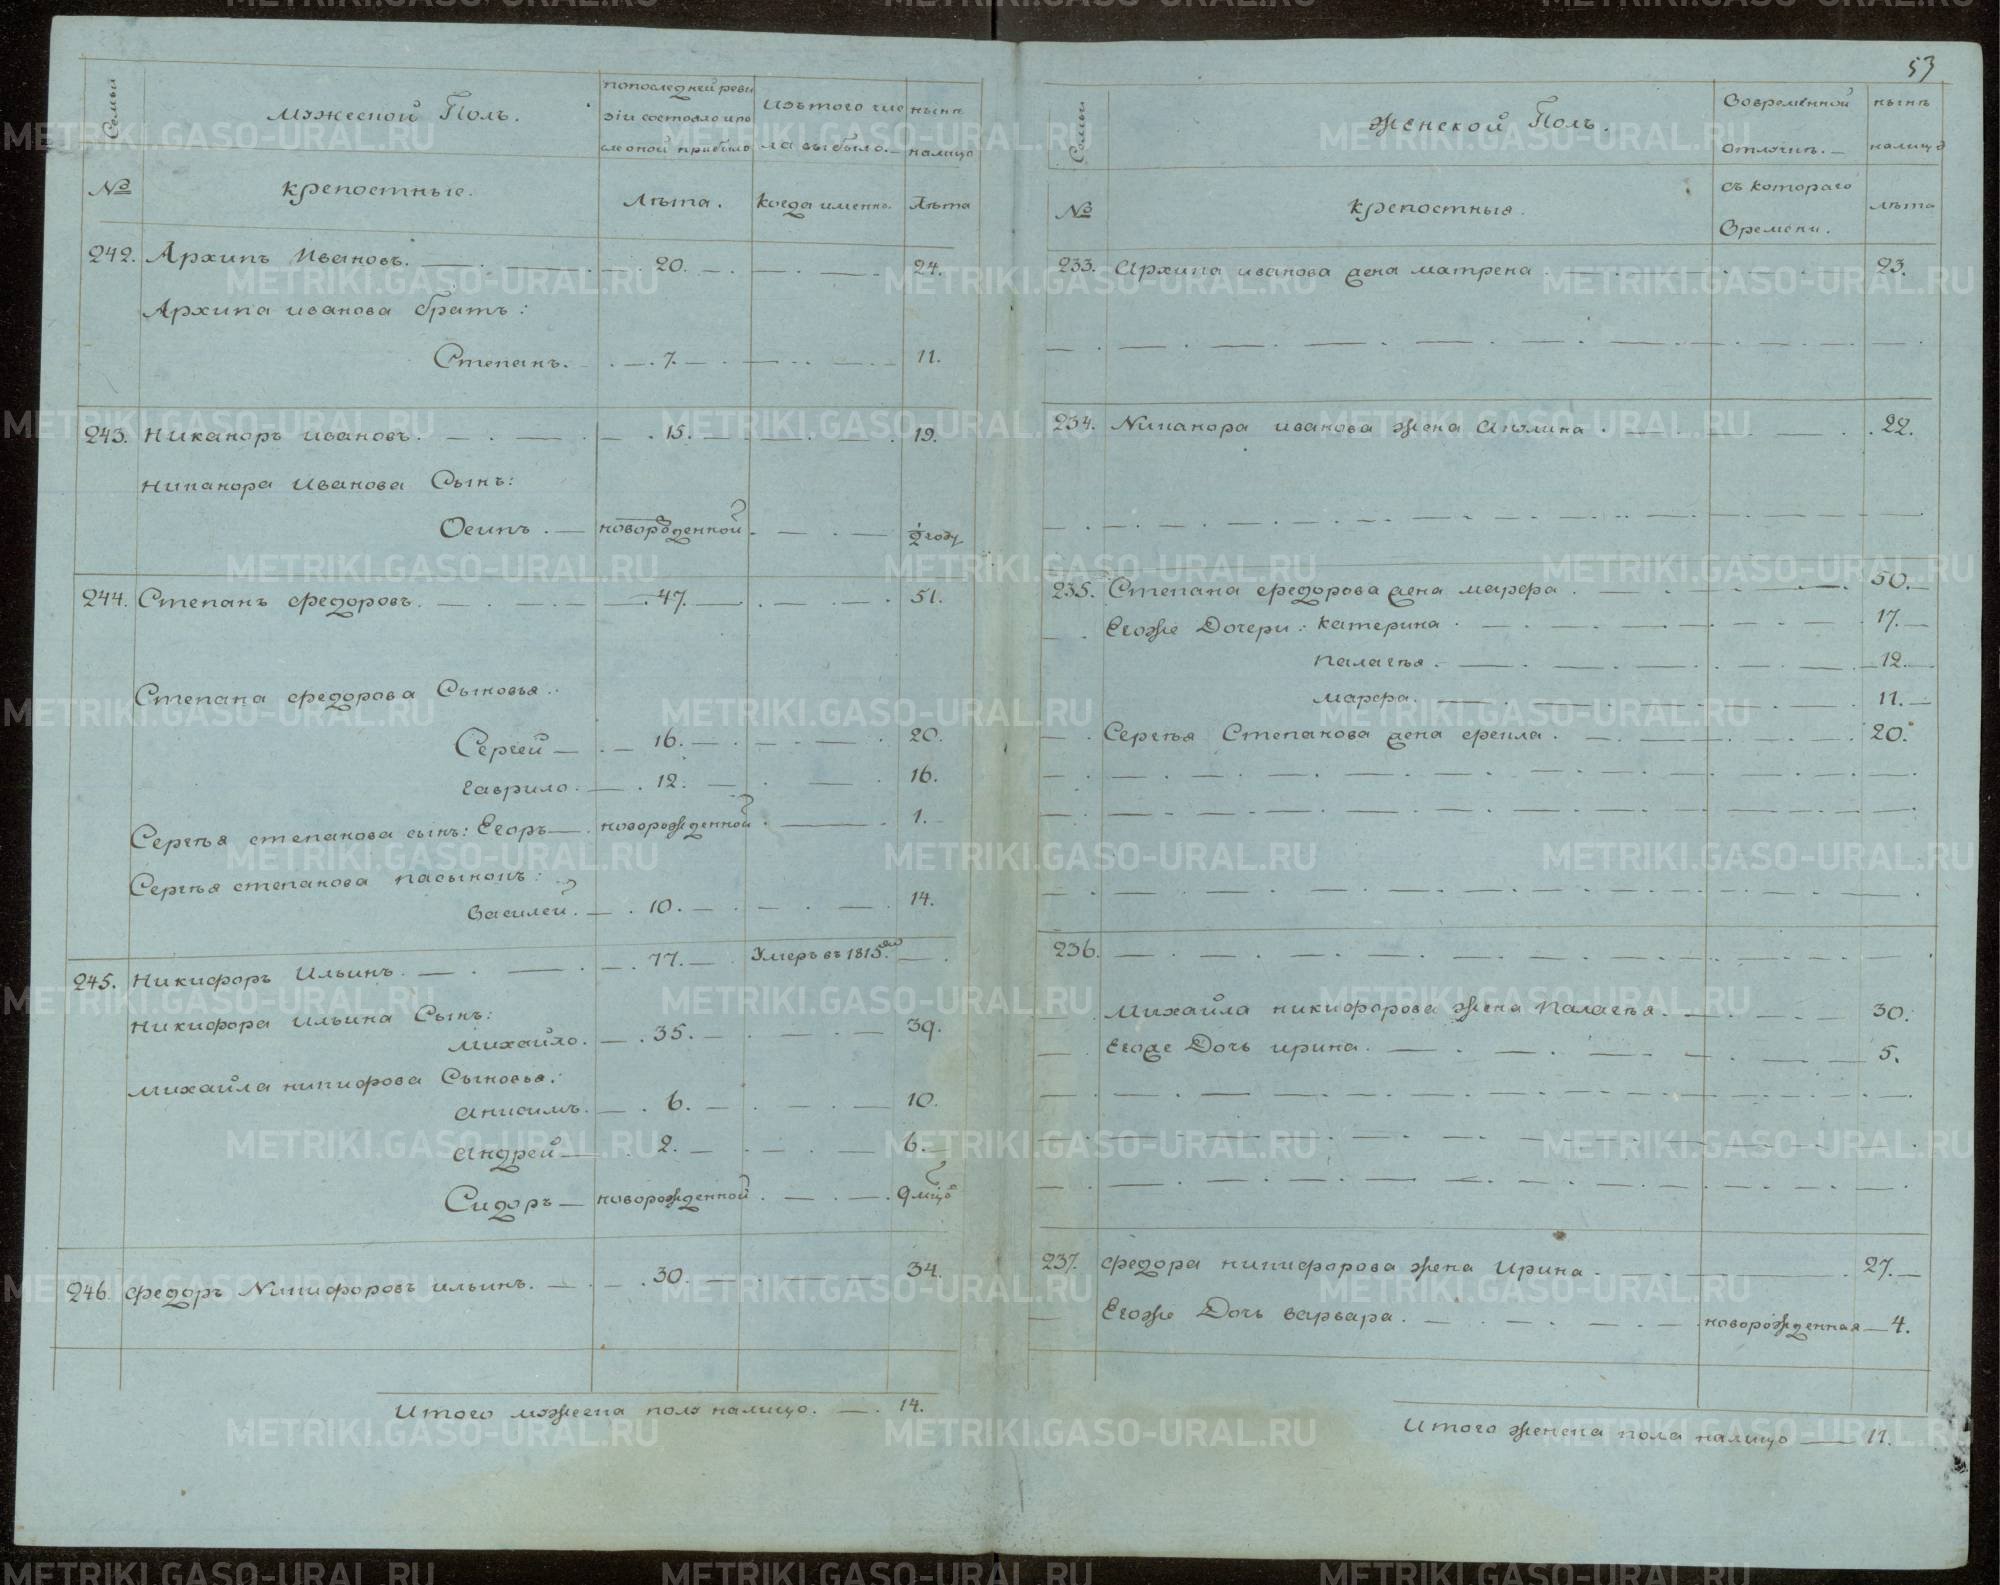 Семьи
мужеской Полъ.
попоследней реви
зіи состояло ипо
слеоной прибыло
Изътого чис
ла выбыло.
нынѣ
налицо
№
крепостные.
Лѣта.
Когда именно.
Лѣта
242. Архипъ Ивановъ. 20. 24.
Архипа иванова братъ:
Степанъ. 7. 11.
243. Никаноръ ивановъ. 15. 19.
Никанора иванова Сынъ:
Осипъ. новорожденной 1/2 году
244. Степанъ федоровъ. 47. 51.
Степана федорова Сыновья:
Сергей 16. 20.
Гаврило. 12. 16.
Сергѣя степанова сынъ: Егоръ новорожденной 1.
Сергѣя степанова пасынокъ:
Василей. 10. 14.
245. Никифоръ Ильинъ. 77. Умеръ въ 1815.
Никифора ильина Сынъ:
Михайло. 35. 39.
Михайла никифрова Сыновья:
Анисимъ. 6. 10.
Андрей 2. 6.
Сидоръ новорожденной 9 мцо
246. федоръ Никифоровъ ильинъ. 30. 34.
Итого мужеска пола налицо. 14.
53
Семьи
Женской Полъ.
Вовременной
отлучкѣ.
нынѣ
налицо
№
крепостныя.
съ котораго
Времени.
лѣта
233. Архипа иванова жена матрена 23.
234. Никанора иванова жена Аполина. 22.
235. Степана федорова жена марфа. 50.
Егоже Дочери: катерина 17.
палагѣя. 12.
марфа. 11.
Сергѣя Степанова жена фекла. 20.
236.
Михайла никифорова жена Палагѣя. 30.
Егоже Дочь ирина. 5.
237. федора никифорова жена Ирина. 27.
Егоже Дочь варвара. новорожденная 4.
Итого женска пола налицо 11.
METRIKI.GASO-URAL.RU